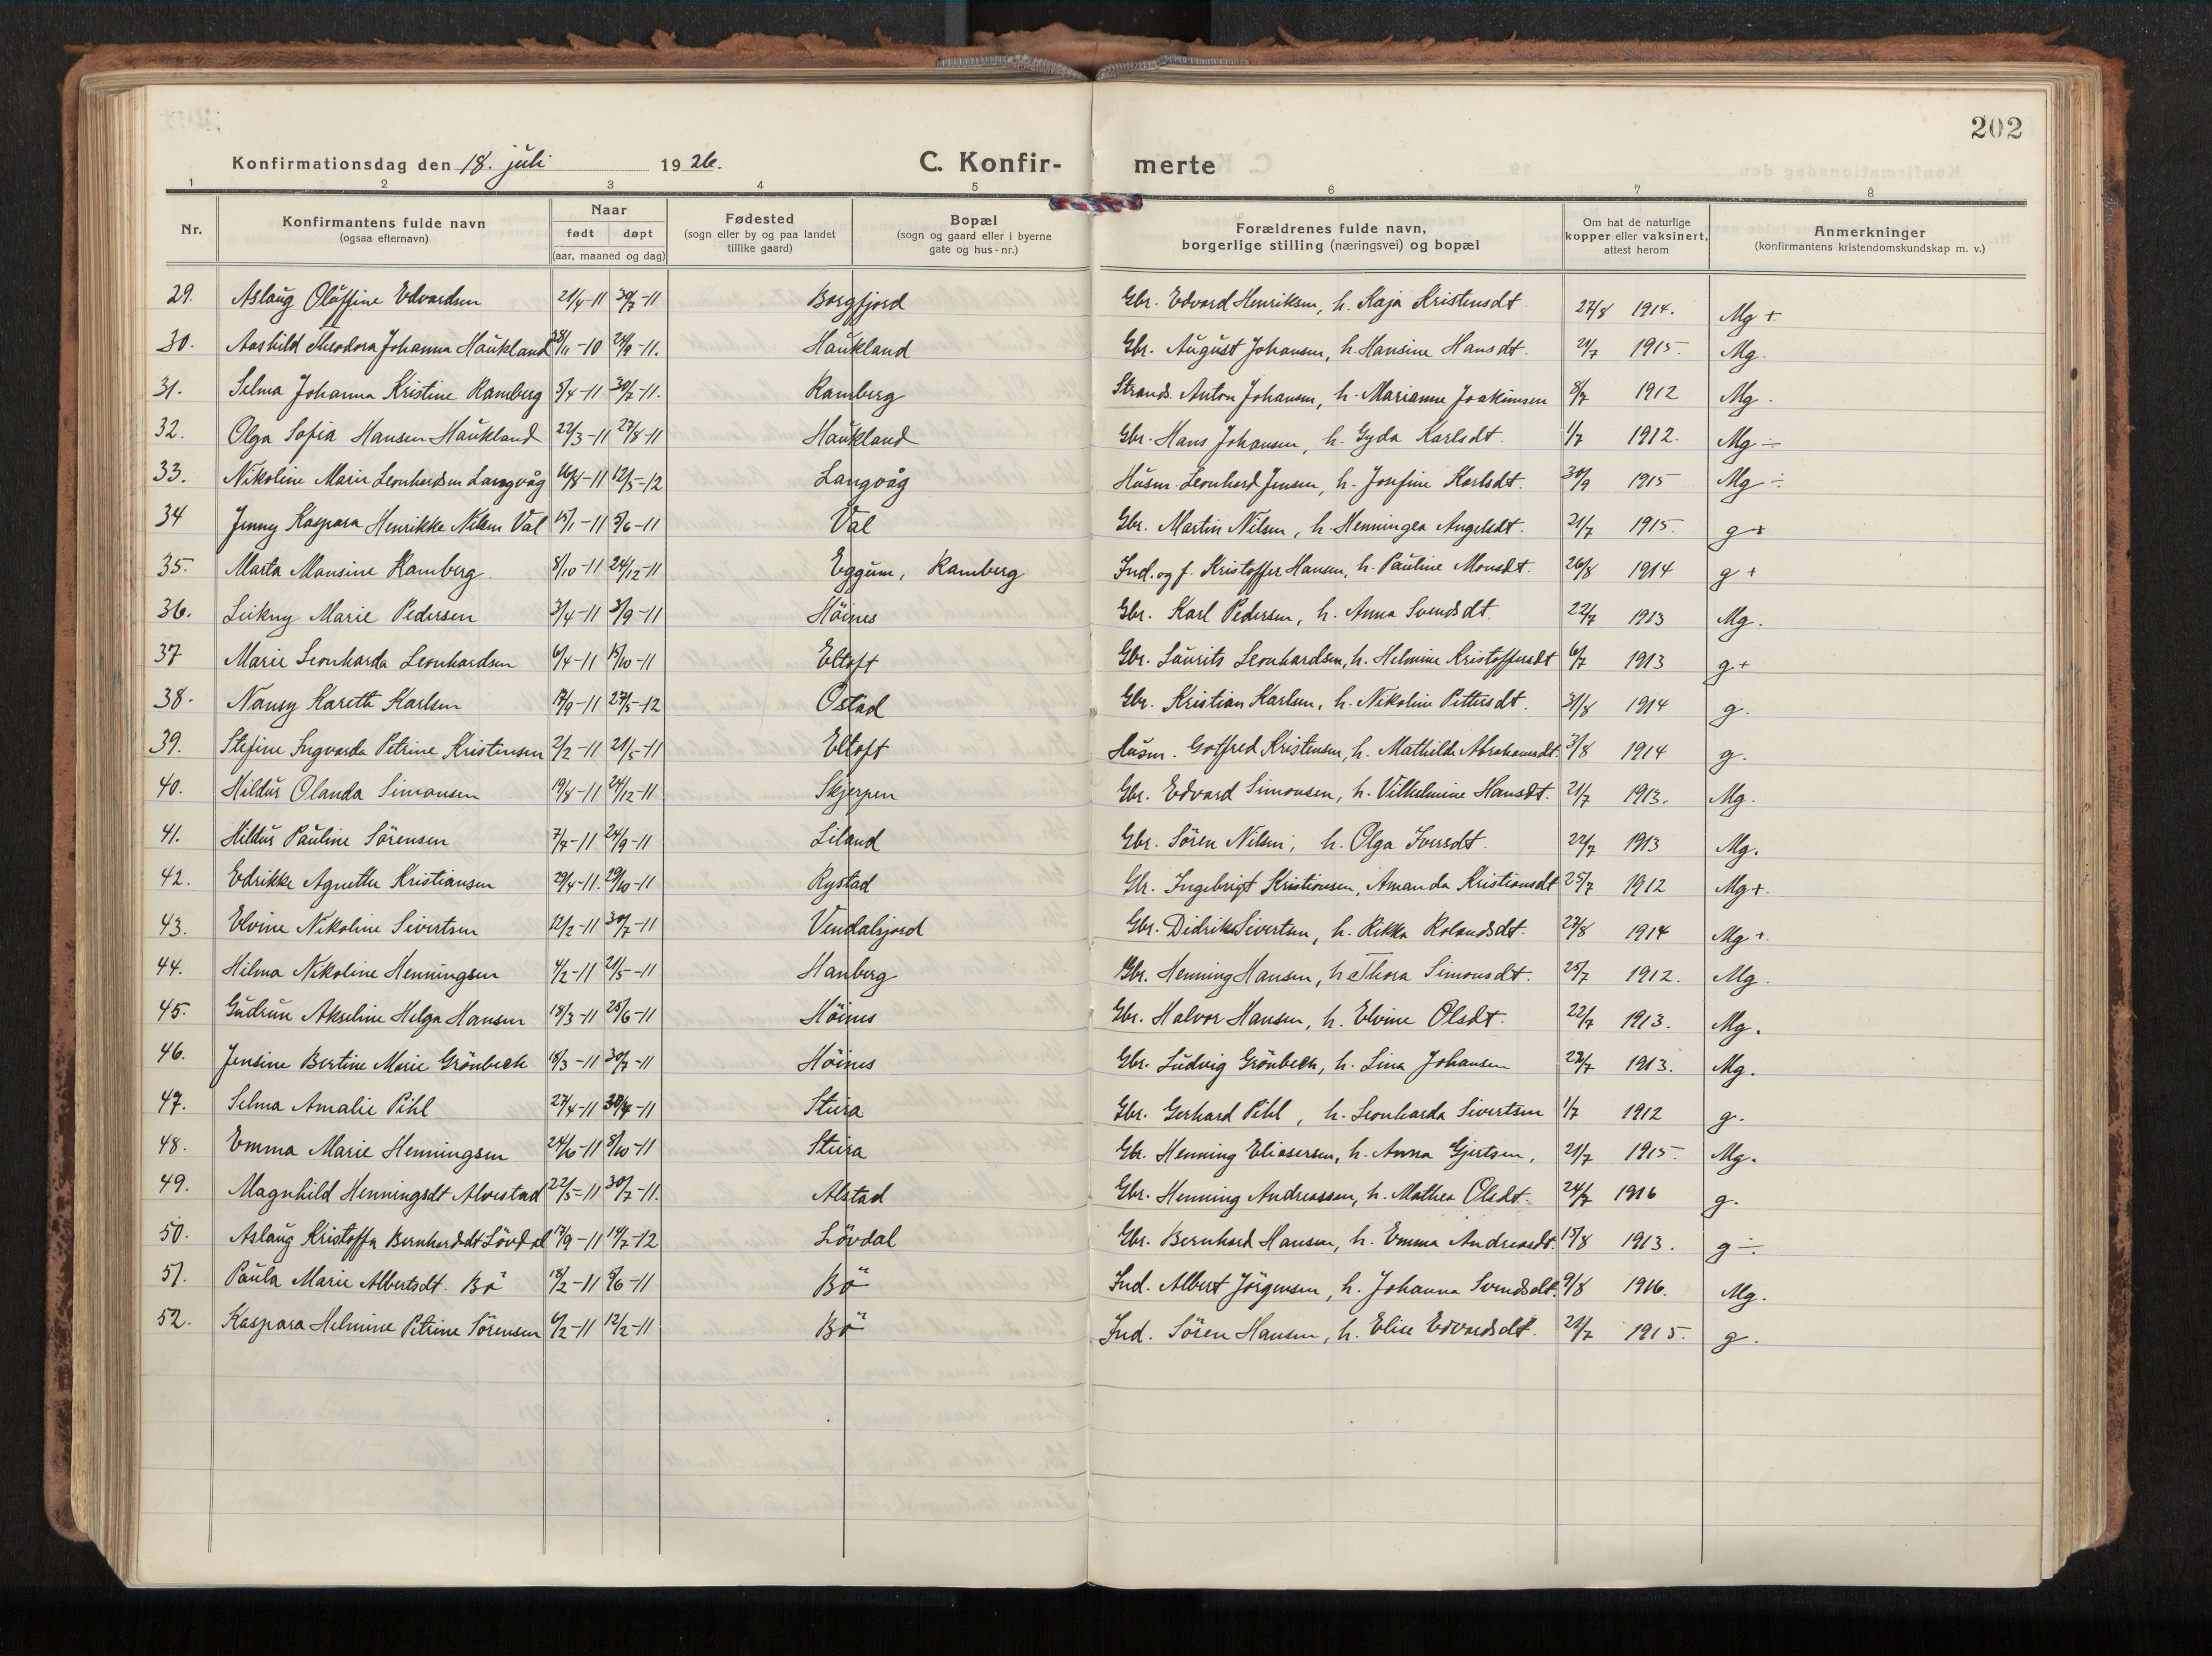 202
Konfirmationsdag den 18. juli 1926. C. Konfir- merte
1 2 3 4 5 6 7 8
Nr. Konfirmantens fulde navn (ogsaa efternavn) Naar født døpt (aar, maaned og dag) Fødested (sogn eller by og paa landet tillike gaard) Bopæl (sogn og gaard eller i byerne gate og hus-nr.) Forældrenes fulde navn, borgerlige stilling (næringsvei) og bopæl Om hat de naturlige kopper eller vaksinert, attest herom Anmerkninger (konfirmantens kristendomskundskap m. v.)
29. Aslaug Olüffine Edvardsen 21/4-11 30/7-11 Borgfjord Gbr. Edvard Henriksen, h. Kaja Kristensdt. 27/8 1914. Mg +
30. Aashild Theodora Johanna Haukland 28/11-10 24/9-11. Haukland Gbr. August Johansen, h. Hansine Hansdt. 21/7 1915. Mg.
31. Selma Johanna Kristine Ramberg 5/4-11 30/7-11. Ramberg Strands. Anton Johansen, h. Marianne Joakimsen 8/7 1912 Mg.
32. Olga Sofia Hansen Haukland 22/3-11 27/8-11 Haukland Gbr. Hans Johansen, h. Gyda Karlsdt. 1/7 1912. Mg ÷
33. Nikoline Marie Leonhardsen Langvåg 16/8-11 12/5-12 Langvåg Husm. Leonhard Jensen, h. Josefine Karlsdt. 30/9 1915 Mg ÷
34 Jenny Kaspara Henrikke Nilsen Val 15/1-11 5/6-11 Val Gbr. Martin Nilsen, h. Henningea Angelsdt. 21/7 1915. g +
35. Marta Mansine Ramberg. 8/10-11 24/12-11 Eggum, Ramberg Ind. og f. Kristoffer Hansen, h. Pauline Monsdt. 26/8 1914 g +
36. Leikny Marie Pedersen 3/4-11 3/9-11 Höines Gbr. Karl Pedersen, h. Anna Svendsdt. 22/7 1913 Mg.
37 Marie Leonharda Leonhardsen 6/4-11 15/10-11 Eltoft Gbr. Laurits Leonhardsen, h. Helmine Kristoffersdt 6/7 1913 g +
38. Nansy Kareth Karlsen 17/9-11 27/5-12 Ostad Gbr. Kristian Karlsen, h. Nikoline Pettersdt. 31/8 1914 g.
39. Stefine Ingvarda Petrine Kristensen 2/2-11 21/5-11 Eltoft Husm. Gotfred Kristensen, h. Mathilde Abrahamsdt. 31/8 1914 g.
40. Hildur Olanda Simonsen 19/8-11 24/12-11 Skjerpen Gbr. Edvard Simonsen, h. Vilhelmine Hansdt. 21/7 1913. Mg.
41. Hildur Pauline Sörensen 7/7-11 24/9-11 Liland Gbr. Sören Nilsen, h. Olga Iversdt. 22/7 1913 Mg.
42. Edrikke Agnethe Kristiansen 29/4-11. 29/10-11 Rystad Gbr. Ingebrigt Kristiansen, Amanda Kristiansdt 25/7 1912 Mg +.
43. Elvine Nikoline Sivertsen 12/2-11 30/7-11 Vendalsjord Gbr. Didrik Sivertsen, h. Rikka Rolandsdt. 27/8 1914 Mg +.
44. Hilma Nikoline Henningsen 4/2-11 21/5-11 Hanberg Gbr. Henning Hansen, h. Thora Simonsdt. 25/7 1912. Mg.
45. Gudrun Akseline Helga Hansen 18/3-11 25/6-11 Höines Gbr. Halvor Hansen, h. Elvine Olsdt. 22/7 1913. Mg.
46. Jensine Bertine Marie Grönbeck 18/3-11 30/7-11 Höines Gbr. Ludvig Grönbeck, h. Lina Johansen 22/7 1913. Mg.
47. Selma Amalie Pihl 27/4-11 30/7-11 Steira Gbr. Gerhard Pihl, h. Leonharda Sivertsen 1/7 1912 g.
48. Emma Marie Henningsen 24/6-11 8/10-11 Steira Gbr. Henning Eliasersen, h. Anna Gjertsen, 21/7 1915. Mg.
49. Magnhild Henningsdt Alvestad 22/5-11 30/7-11. Alstad Gbr. Henning Andreassen, h. Mathea Olsdt. 24/7 1916 g.
50. Aslaug Kristoffa Bernharddt Lövdal 17/9-11 14/7-12 Lövdal Gbr. Bernhard Hansen, h. Emma Andreasdt. 15/8 1913. g ÷
51. Paula Marie Albertsdt. Bö 18/2-11 5/6-11 Bö Ind. Albert Jörgensen, h. Johanna Svendsdt. 9/8 1916. Mg.
52. Kaspara Helmine Petrine Sörensen 6/2-11 12/2-11 Bö Ind. Sören Hansen, h. Elise Edvardsdt. 21/7 1915. g.